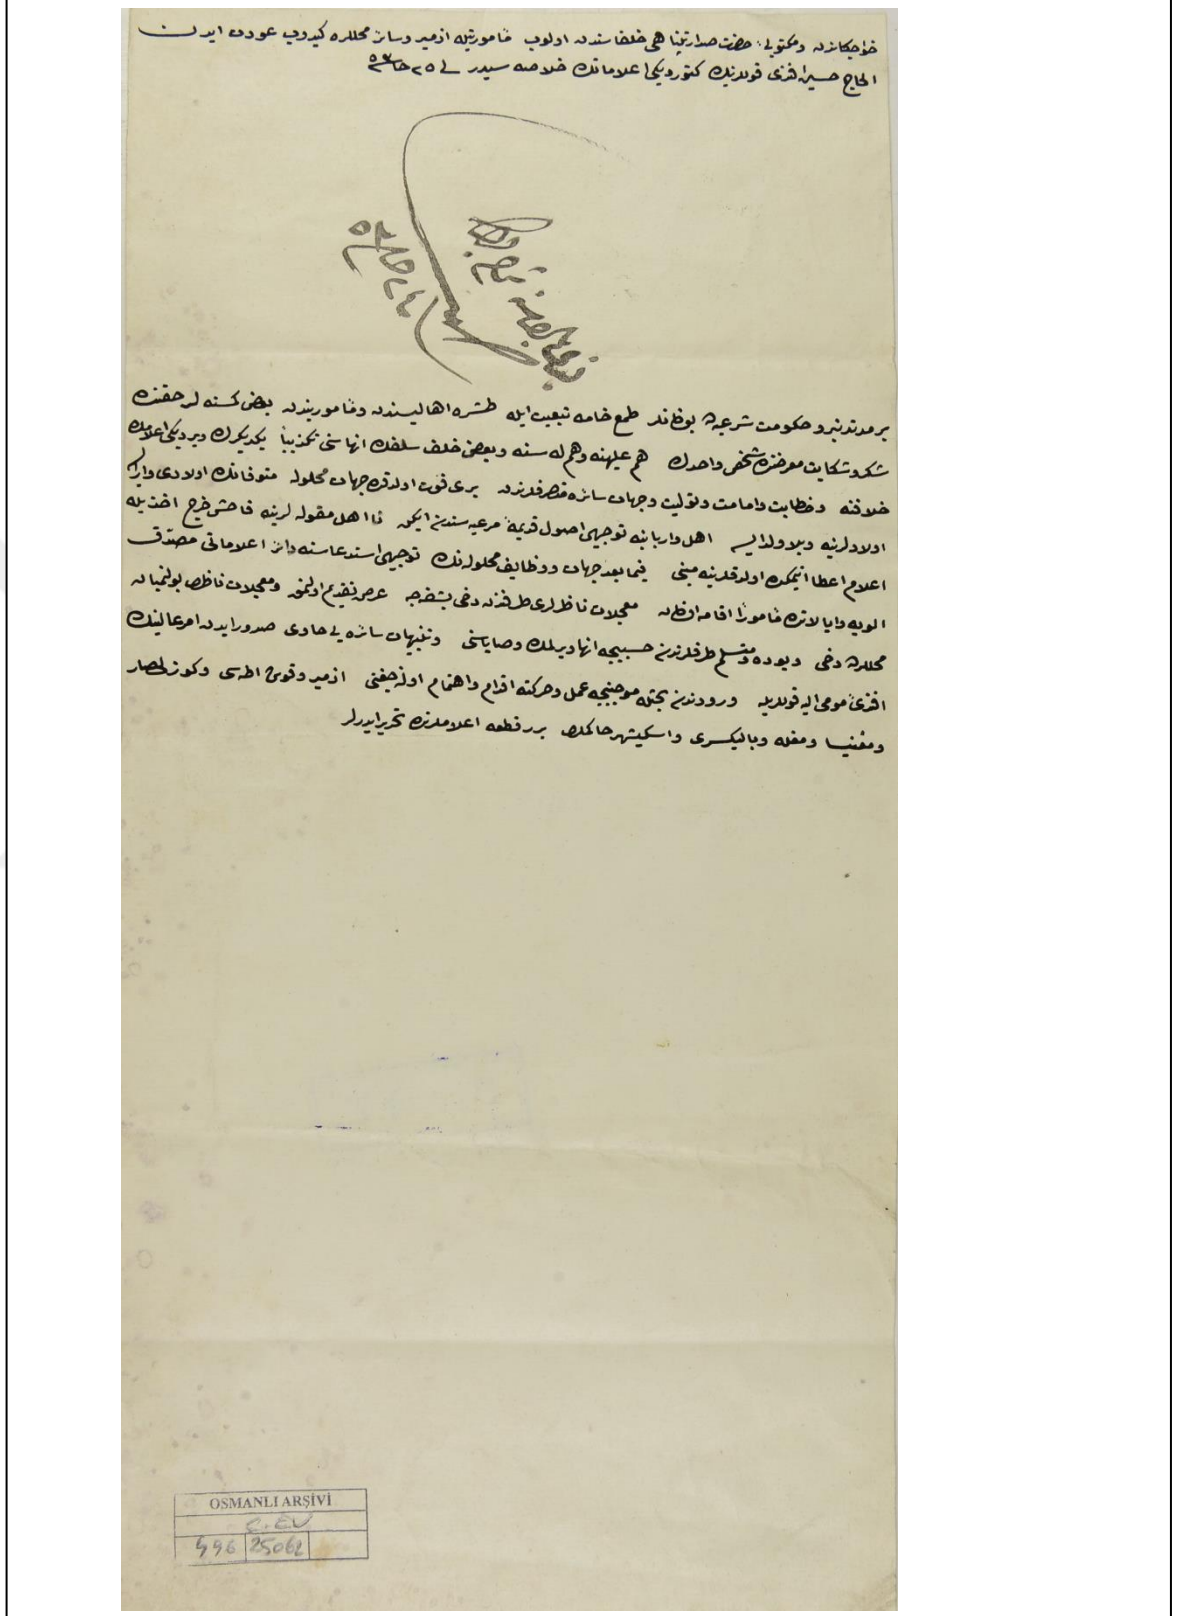 خواجكاندن ومكتوبئ حضرت صدارتپناهى خلفاسندن اولوب مأموريتله ازمير وسائر محللره كيدوب عودت ايدن
الحاج حسين افندى قوللرينك كتورديكى اعلاماتك خلاصه سيدر فى ٢٥
بر مدتدنبرو حكومت شرعيه ده بولنانلر طمع خامه تبعيت ايله طشره اهاليسندن ومأموريندن بعض كسنه لر حقنده
شكر وشكايت معرضنده شخص واحدك هم عليهنه وهم له سنه وبعض خلف سلفك انهاسنى تكذيباً يكديكرك ويرديكى اعلامك
خلافنه وخطابت وامامت وتوليت وجهات سائره متصرفلرندن برى فوت اولدقده جهات محلوله متوفانك اولادى وار ايسه
اولادلرينه وبلا ولد ايسه اهل واربابنه توجيهى اصول قديمهٔ مرعيه سندن ايكن نا اهل مقوله لرينه فاحش خرج اخذيله
اعلام اعطا ايتمكده اولدقلرينه مبنى فيمابعد جهات ووظايف محلوله نك توجيهى استدعاسنه دائر اعلاماتى مصدق
الويه وايالاتده مأموراً اقامه اولنان معجلات ناظرلرى طرفندن دخى بشقه جه عرض تقديم اولنمق ومعجلات ناظرى بولنميان
محللرده دخى ويوده ومتسلم طرفلرندن حسبيجه انها ويرلمك وصاياسنى وتنبيهات سائره يى حاوى صدور ايدن امر عالينك
افندئ مومى اليه قوللريله ورودندن بحثله موجبنجه عمل وحركته اقدام واهتمام اولنه جغنى ازمير وقوش اطه سى وكوزلحصار
ومغنيسا ومغله وباليكسرى واسكيشهر حاكملرى برر قطعه اعلاملرنده تحرير ايدرلر
OSMANLI ARŞİVİ
C.EV
496 25062